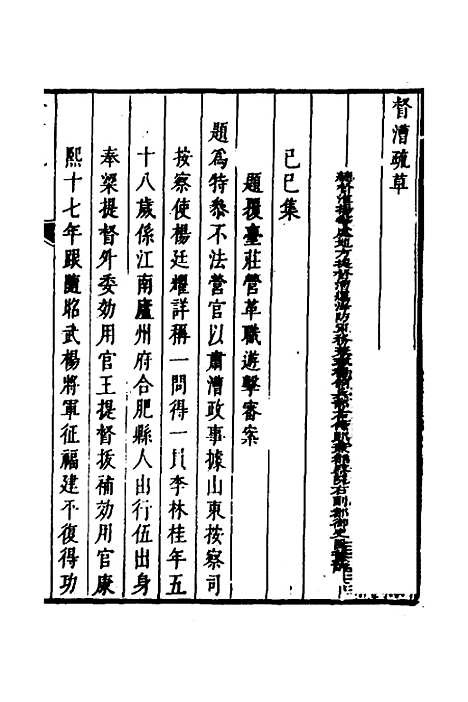 督漕疏草
己巳集
題覆臺莊營革職遊擊審案
題為特參不法營官以肅漕政事據山東按察司
按察使楊廷耀詳稱一問得一員李林桂年五
十八歲係江南廬州府合肥縣人由行伍出身
奉梁提督外委効用官王提督拔補効用官康
熙十七年跟隨昭武楊將軍征福建不復得功